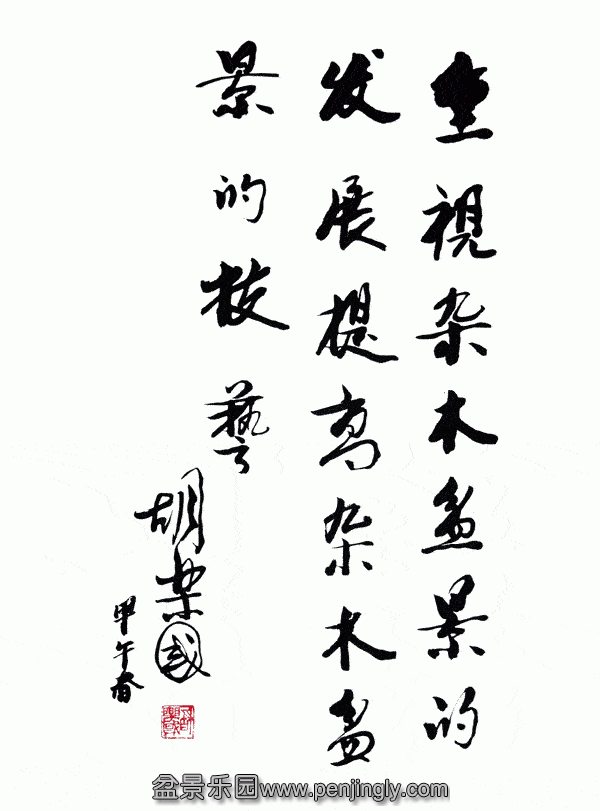 重視杂木盆景的
发展提高杂木盆
景的技藝
胡荣国
甲午春
盆景乐园www.penjingly.com